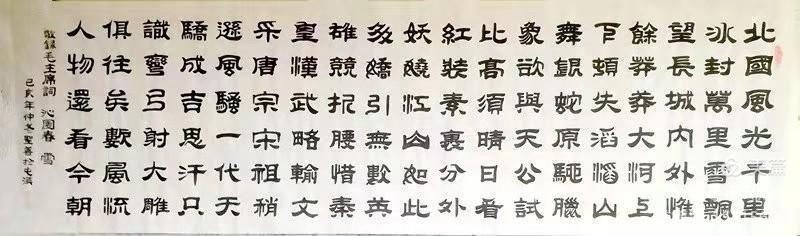 北國風光千里
冰封萬里雪飄
望長城內外惟
餘莽莽大河上
下頓失滔滔山
舞銀蛇原馳臘
象欲與天公試
比高須晴日看
紅裝素裹分外
妖嬈江山如此
多嬌引無數英
雄競折腰惜秦
皇漢武略輸文
采唐宗宋祖稍
遜風騷一代天
驕成吉思汗只
識彎弓射大雕
俱往矣數風流
人物還看今朝
敬錄毛主席詞 沁園春 雪
己亥年仲冬
美篇